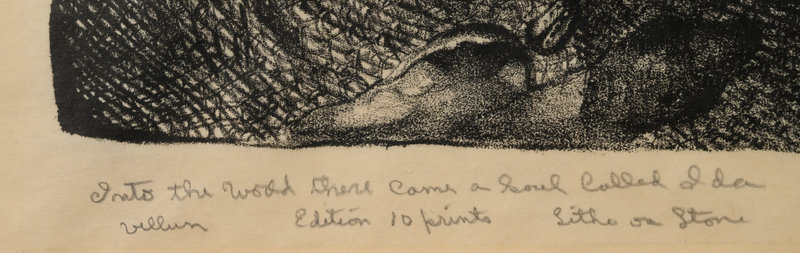 Into the World there Came a Soul Called Ida
Vellum Edition 10 prints Litho on Stone